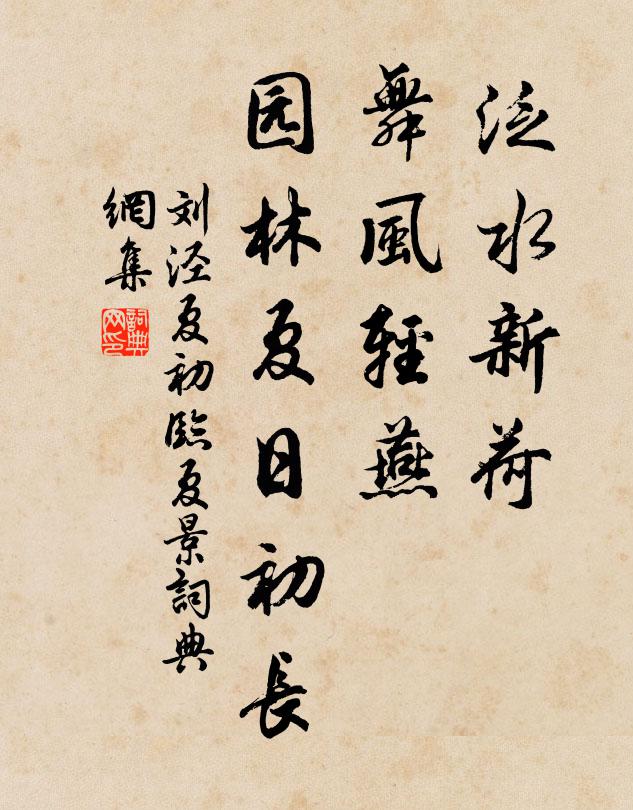 泛水新荷
舞風輕燕
园林夏日初長
刘泾夏初臨夏景詞典
網集
詞典
网印